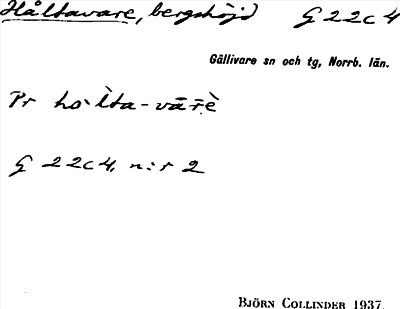 Håltavare, bergshöjd G 22c 4
Gällivare sn och tg, Norrb. län.
Pr ho·l̀ta-vār̄è
G 22c4, n:r 2
BJÖRN COLLINDER 1937.